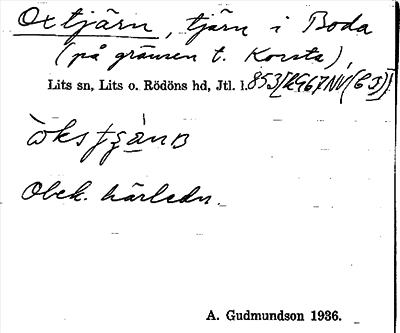 Oxtjärn, tjärn i Boda
(på gränsen t. Korsta),
Lits sn, Lits o. Rödöns hd, Jtl. l.
Obek. härledn.
A. Gudmundson 1936.